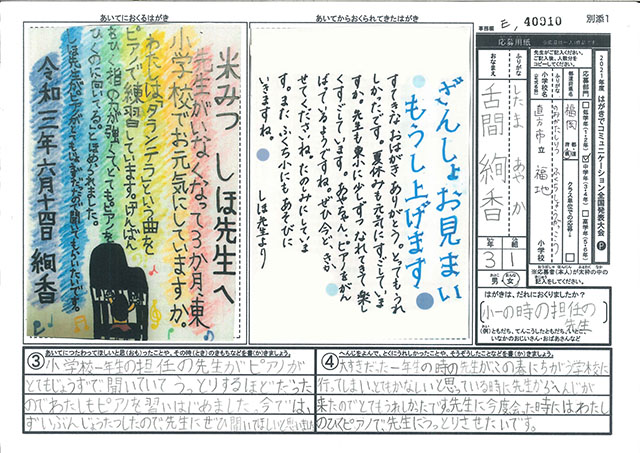 事務局 E, 40010
別添1
あいてにおくるはがき
米みつ しほ先生へ
先生がいなくなって3か月、東
小学校でお元気にしていますか。
わたしは、「タランテラ」という曲を
ピアノで練習しています。げんぶん
令和三年六月十四日 絢香
あいてからおくられてきたはがき
ざんしょお見まい
もうし上げます
すてきなおはがきありがとう。とってもうれ
しかったです。夏休みも元気にすごしていま
すか。先生も東小に少しずつなれてきて、楽し
くすごしています。あやさん、ピアノをがん
ばっているようですね。ぜひ今ど、きか
せてくださいね。たのしみにしていま
す。また、ふくち小にもあそびに
いきますね。
しほ先生より
応募用紙
先生がご記入ください。
ご記入後、人数分を
コピーしてください。
2021年度 はがきでコミュニケーション全国発表大会
応募部門
低学年(1・2年)
中学年(3・4年)
高学年(5・6年)
都道府県名
福岡
クラス単位での応募
小学校名
直方市立 福地
小学校
ふりがな
おなまえ
したま あやか
舌間 絢香
3年
1組
男・女
※応募者(本人)が太枠の中の
記入をしてください。
はがきは、だれにおくりましたか?
小一の時の担任の
先生
(例)ともだち、てんこうしたともだち、いとこ、
いなかのおじいさん・おばあさんなど
③ あいてにつたわってほしいと思(おも)ったことや、その時(とき)のきもちなどを書(か)きましょう。
小学校一年生の担任の先生がピアノが
とてもじょうずで聞いていてうっとりするほどだった
のでわたしもピアノを習いはじめました。今では、
ずいぶんじょうたつしたので先生にぜひ聞いてほしいと思いました
④ へんじをよんで、とくにうれしかったことや、そうぞうしたことなどを書(か)きましょう。
大すきだった一年生の時の先生がこの春にちがう学校に
行ってしまいとてもかなしいと思っている時に先生からへんじが
来たのでとてもうれしかったです。先生に今度会った時にはわたし
のひくピアノで、先生にうっとりさせたいです。